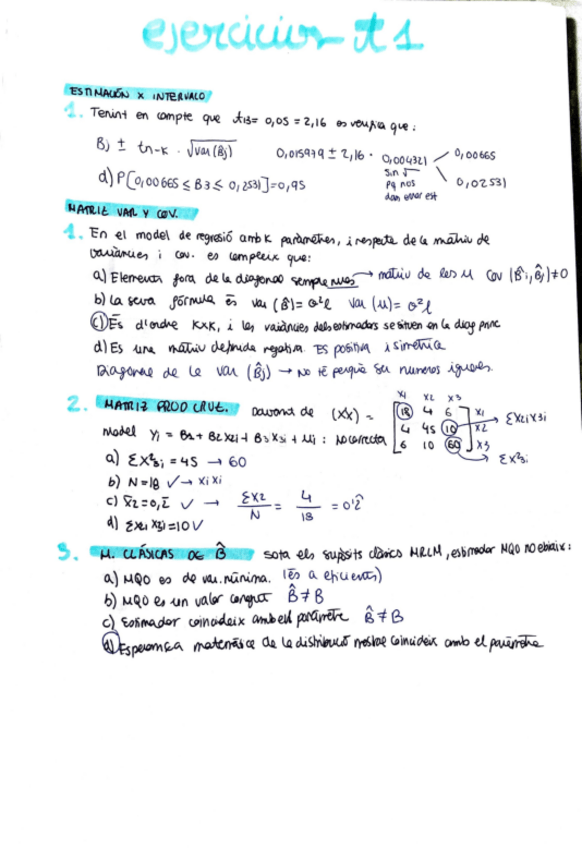 ejercicios t1
ESTIMACIÓN X INTERVALO
1. Tenint en compte que t13= 0,05 = 2,16 es verifica que:
Bj ± tn-k · √var(Bj)   0,015979 ± 2,16 · 0,004321   0,00665
sin √
pq nos
dan var est   0,02531
d) P[0,00665 ≤ B3 ≤ 0,2531]=0,95
MATRIZ VAR Y COV.
1. En el model de regressió amb K paràmetres, i respecte de la matriu de
variàncies i cov. es compleix que:
a) Elements fora de la diagonal sempre nuls → matriu de les u   Cov (B̂i, B̂j)≠0
b) La seva fórmula és var (B̂)= σ²I   var (u)= σ²I
c) És d'ordre KxK, i les variàncies dels estimadors se situen en la diag princ
d) Es una matriu definida negativa. ES positiva i simetrica
Diagonal de la var (B̂j) → No té perquè ser números iguals.
2. MATRIZ PROD CRUZ. Davant de (XX) =
x1 x2 x3
18 4 6 x1
4 45 10 x2 → Σx2ix3i
6 10 60 x3 → Σx²3i
model Yi = B1 + B2x2i + B3x3i + ui : No correcta
a) Σx²3i = 45 → 60
b) N=18 ✓→ xi xi
c) x̄2=0,2̄ ✓ → Σx2/N = 4/18 = 0'2̂
d) Σx2i x3i=10 ✓
3. M. CLÁSICAS DE B̂ sota els supòsits clàsics MRLM, estimador MQO no biaix:
a) MQO es de var. mínima. (és a eficients)
b) MQO es un valor congut B̂ ≠ B
c) Estimador coincideix amb el paràmetre B̂ ≠ B
d) Esperança matemàtica de la distribució mostral coincideix amb el paràmetre